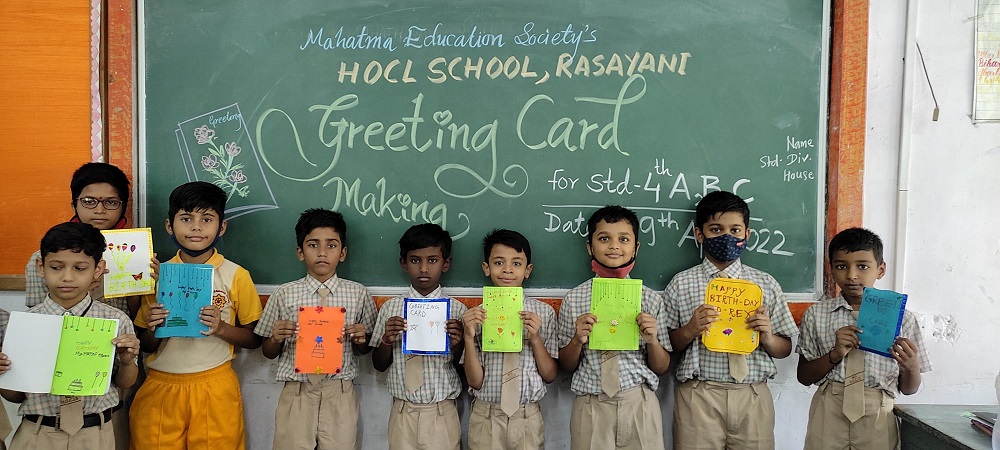 Mahatma Education Society's
HOCL SCHOOL, RASAYANI
Greeting
Greeting Card
Making
for Std-4th A.B.C
Date 9th A 2022
Name
Std-Div.
House
GREETING
CARD
HAPPY
BIRTH-DAY
GREET